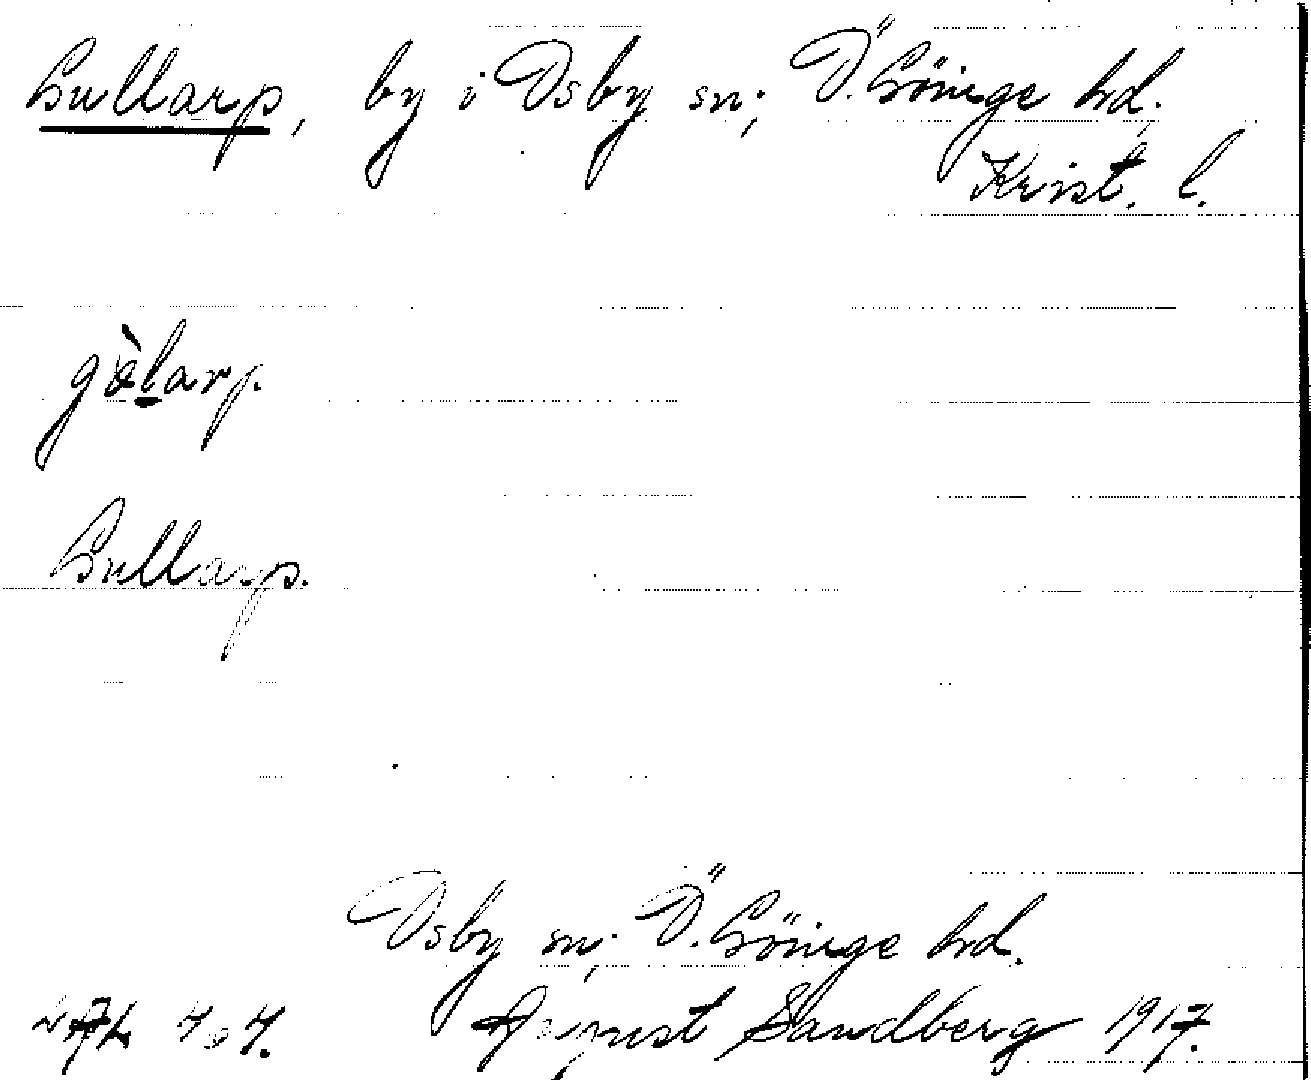 Gullarp, by i Osby sn; Ö. Göinge hd.
Krist. l.
gòlarp.
Gullarp.
Osby sn; Ö. Göinge hd.
August Sandberg 1917.